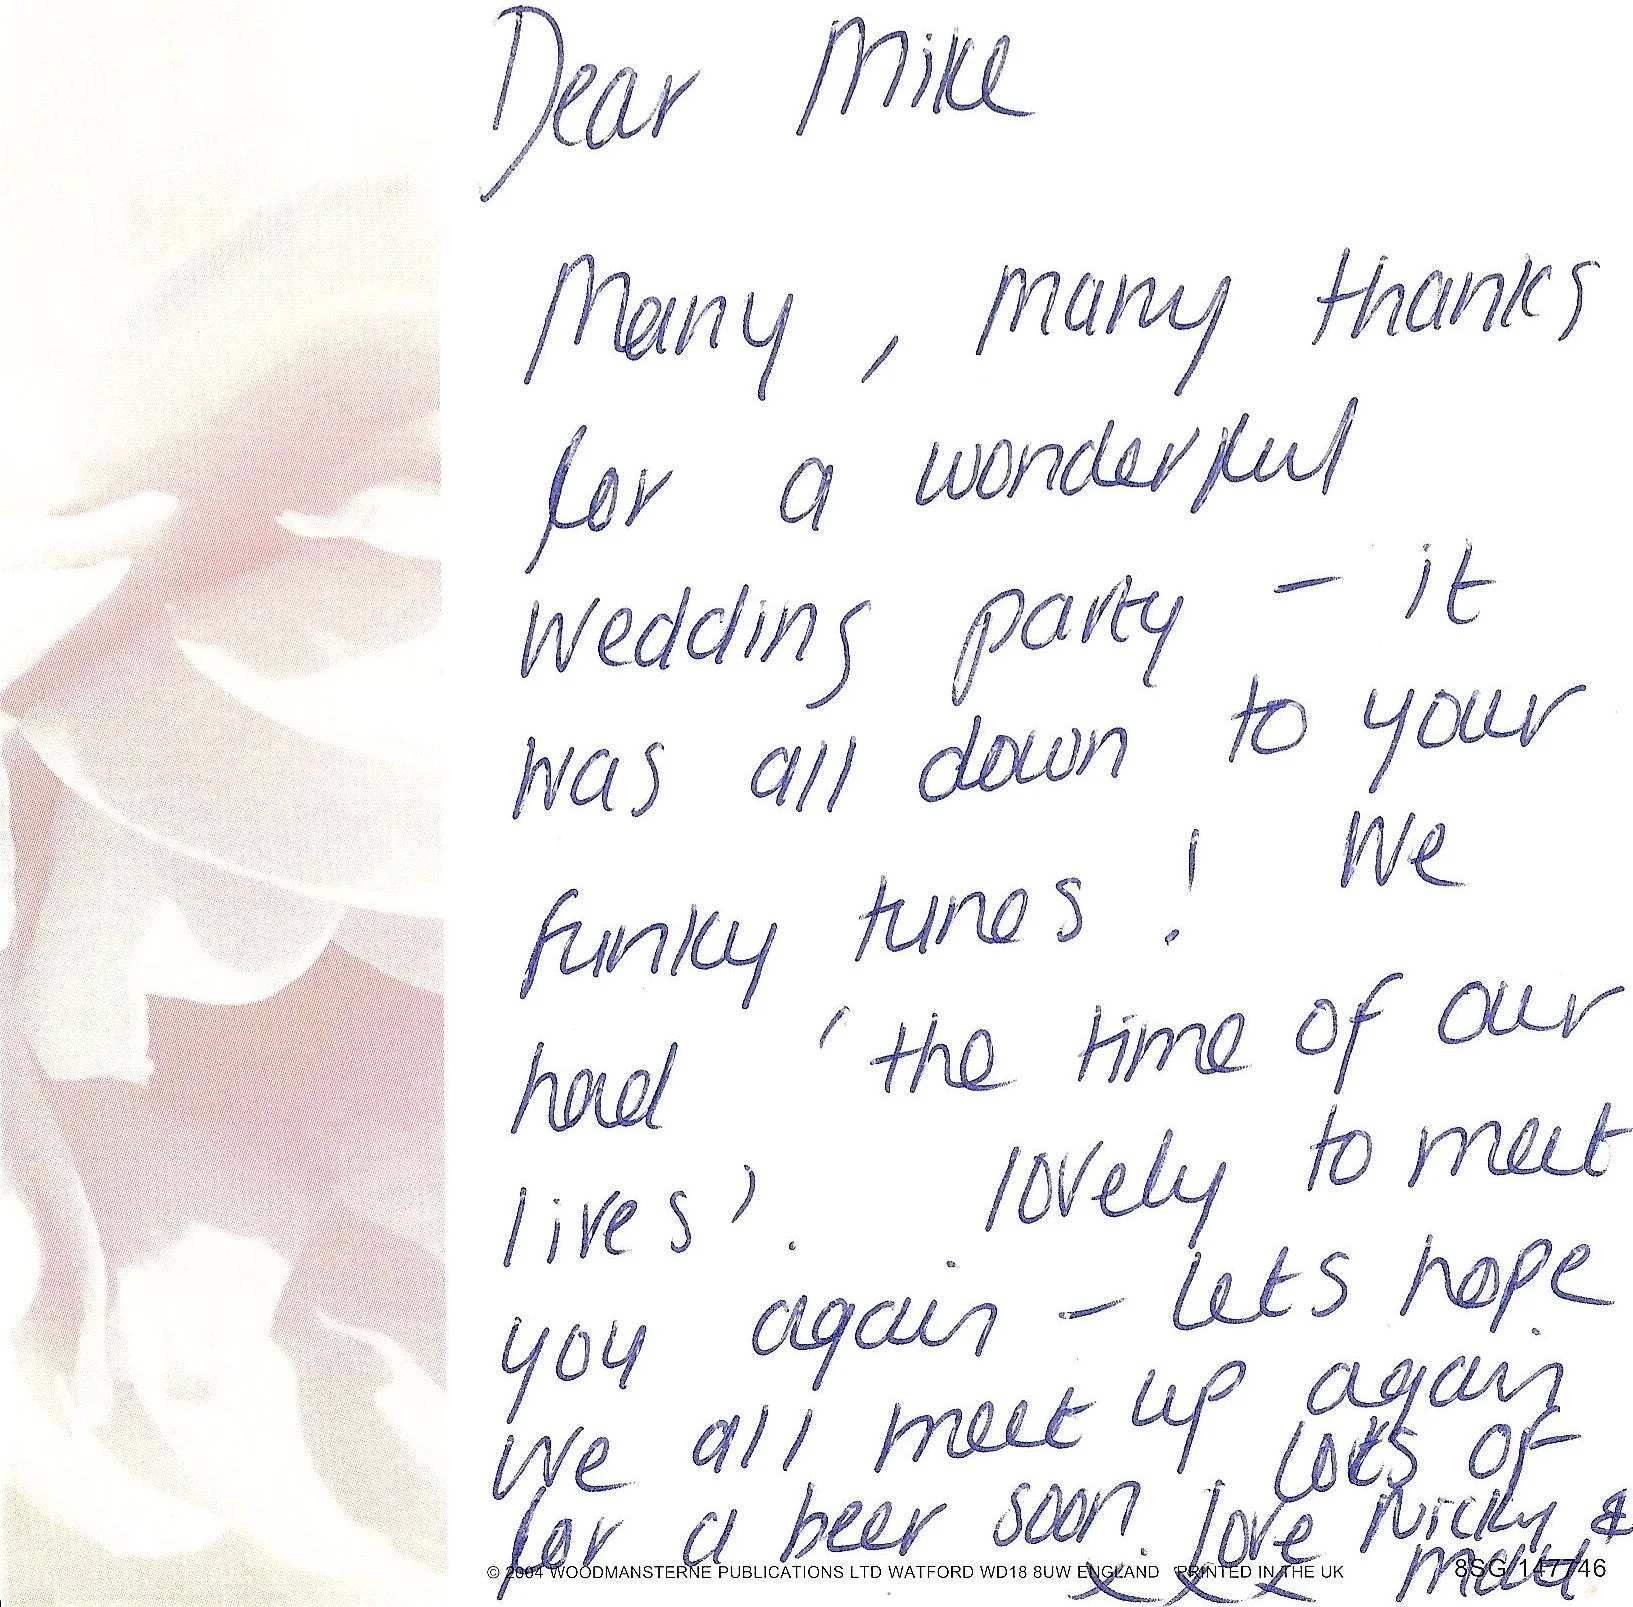 Dear Mike
Many, many thanks
for a wonderful
wedding party – it
was all down to your
funky tunes! We
had 'the time of our
lives'. lovely to meet
you again – lets hope
we all meet up again
for a beer soon. lots of
love Nicky &
xxx
© 2004 WOODMANSTERNE PUBLICATIONS LTD WATFORD WD18 8UW ENGLAND PRINTED IN THE UK
8SG 147746